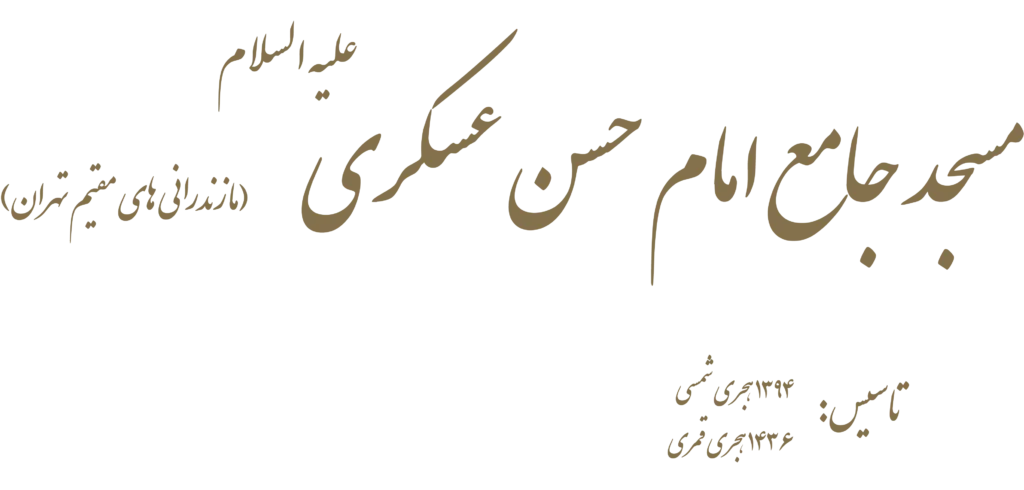 مسجد جامع امام حسن عسکری علیه السلام (مازندرانی های مقیم تهران)
تاسیس:
۱۳۹۴ هجری شمسی
۱۴۳۶ هجری قمری